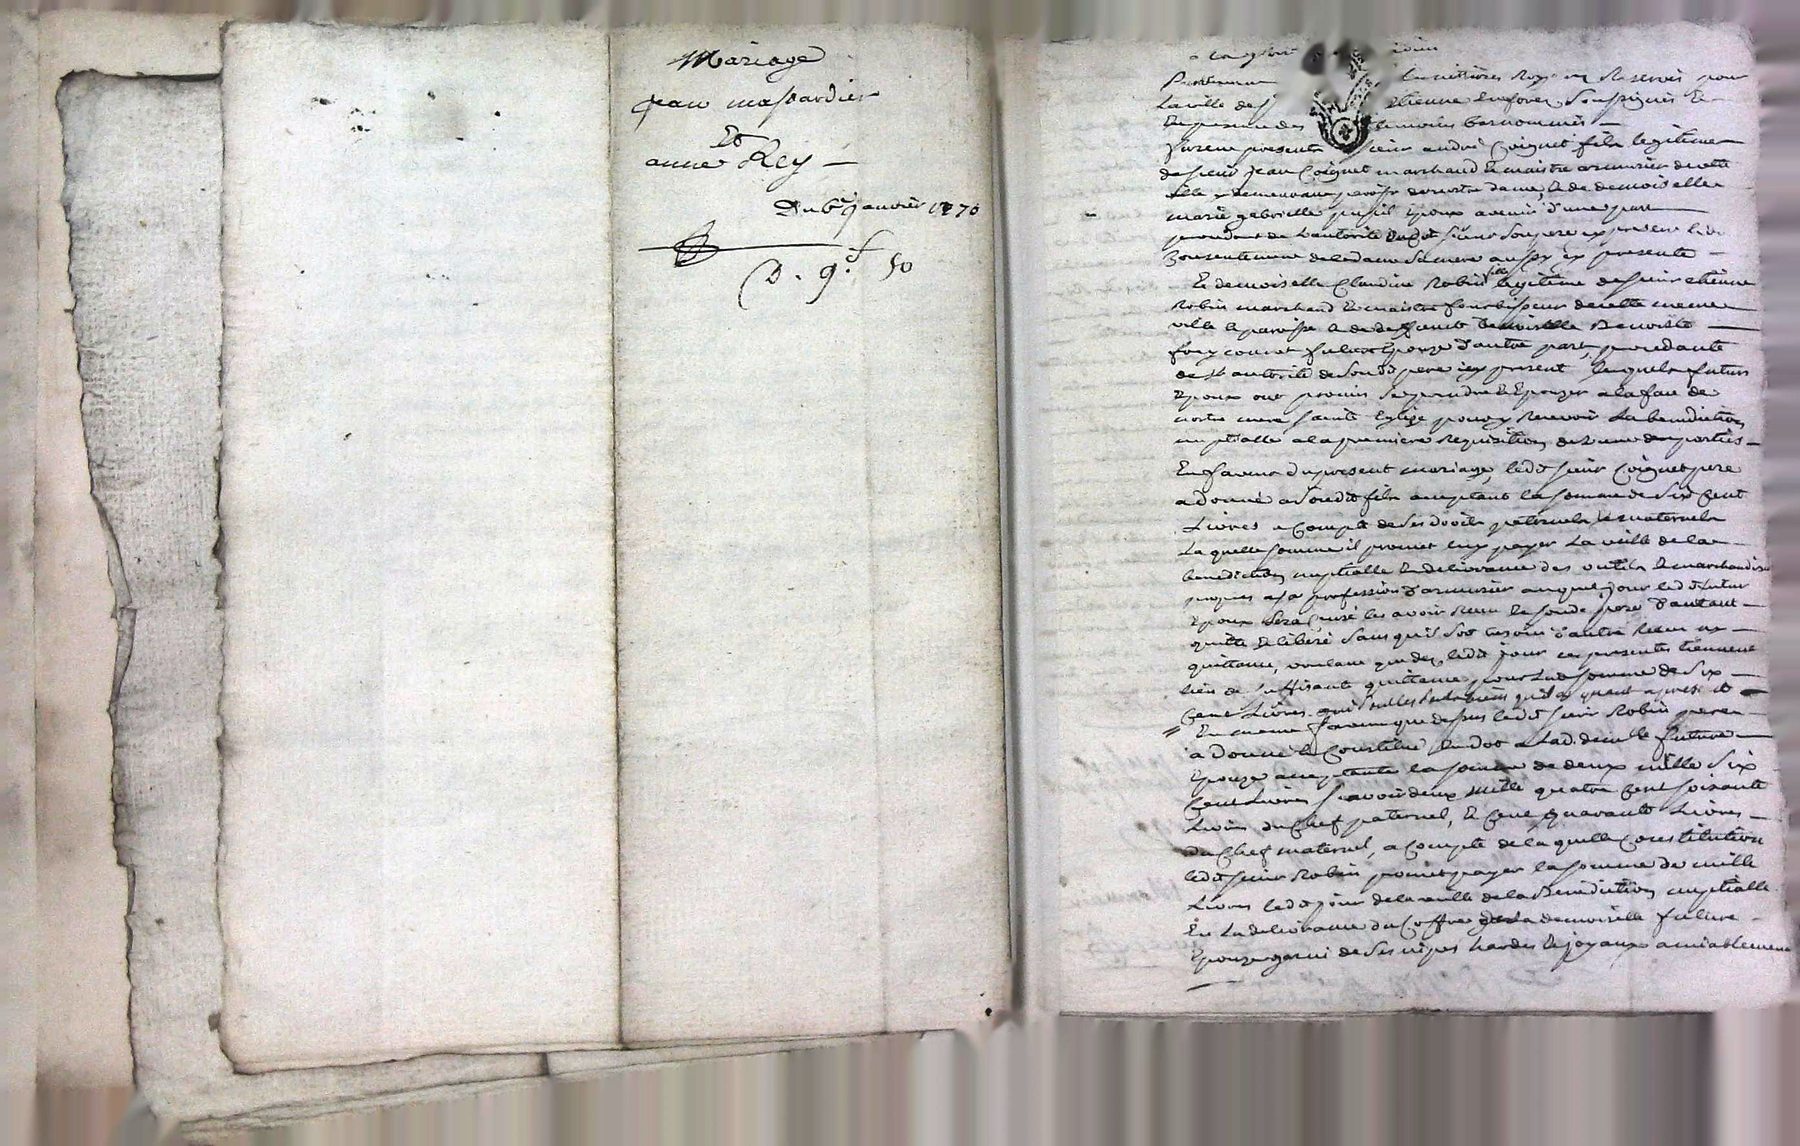 Mariage
jean massardier
Et
anne Rey —
Du 6e janvier 1770
D. 9.f 10
Pardevant les nottaires Royaux Reservés pour
la ville de St etienne en forez soussignés Et
En presence des temoins bas nommés —
furent presents sieur andré Coignet fils legitime
de sieur jean Coignet marchand & maistre armurier de cette
ville y demeurant paroisse de nostre dame, & de demoiselle
marie gabrielle pupil Epoux avenir d'une part
procedant de L'autorité dudit sieur son pere icy present & du
Consentement de la dame sa mere aussy icy presente —
Et demoiselle Claudine Robin fille legitime de sieur etienne
Robin marchand & maistre fourbisseur de cette meme
ville & paroisse & de demoiselle Benoiste —
future Epouze d'autre part, procedante
de L'autorité de son dit pere icy present lesquels futurs
Epoux ont promis se prendre & Epouzer a la face de
notre mere sainte Eglize pour y Recevoir la benediction
nuptialle a la premiere Requisition de L'une des parties —
En faveur du present mariage, ledit sieur Coignet pere
a donné a son dit fils acceptant la somme de six cent
Livres a Compte de ses droits paternels & maternels
laquelle somme il promet luy payer La veille de la
benediction nuptialle En delivrance des outils & marchandises
propres a sa profession d'armurier auquel jour ledit futur
Epoux sera censé les avoir Receu & son dit pere d'autant —
quitte & libéré sans qu'il soit besoin d'autre Receu ny —
quittance, voulant que dez ledit jour ces presentes tiennent
lieu de suffisante quittance pour lad. somme de six —
cent Livres
En meme faveur que dessus ledit sieur Robin pere
a donné & Constitué En dot a lad. dem.lle future
Epouze acceptante la somme de deux mille six
cent Livres scavoir deux mille quatre cent soixante
Livres du Chef paternel, & cent quarante Livres —
du Chef maternel, a compte de laquelle Constitution
ledit sieur Robin promet payer la somme de mille
Livres ledit jour de la veille de la Benediction nuptialle
En la delivrance du Coffre de la demoiselle future
Epouze garni de ses nipes hardes & joyaux amiablement